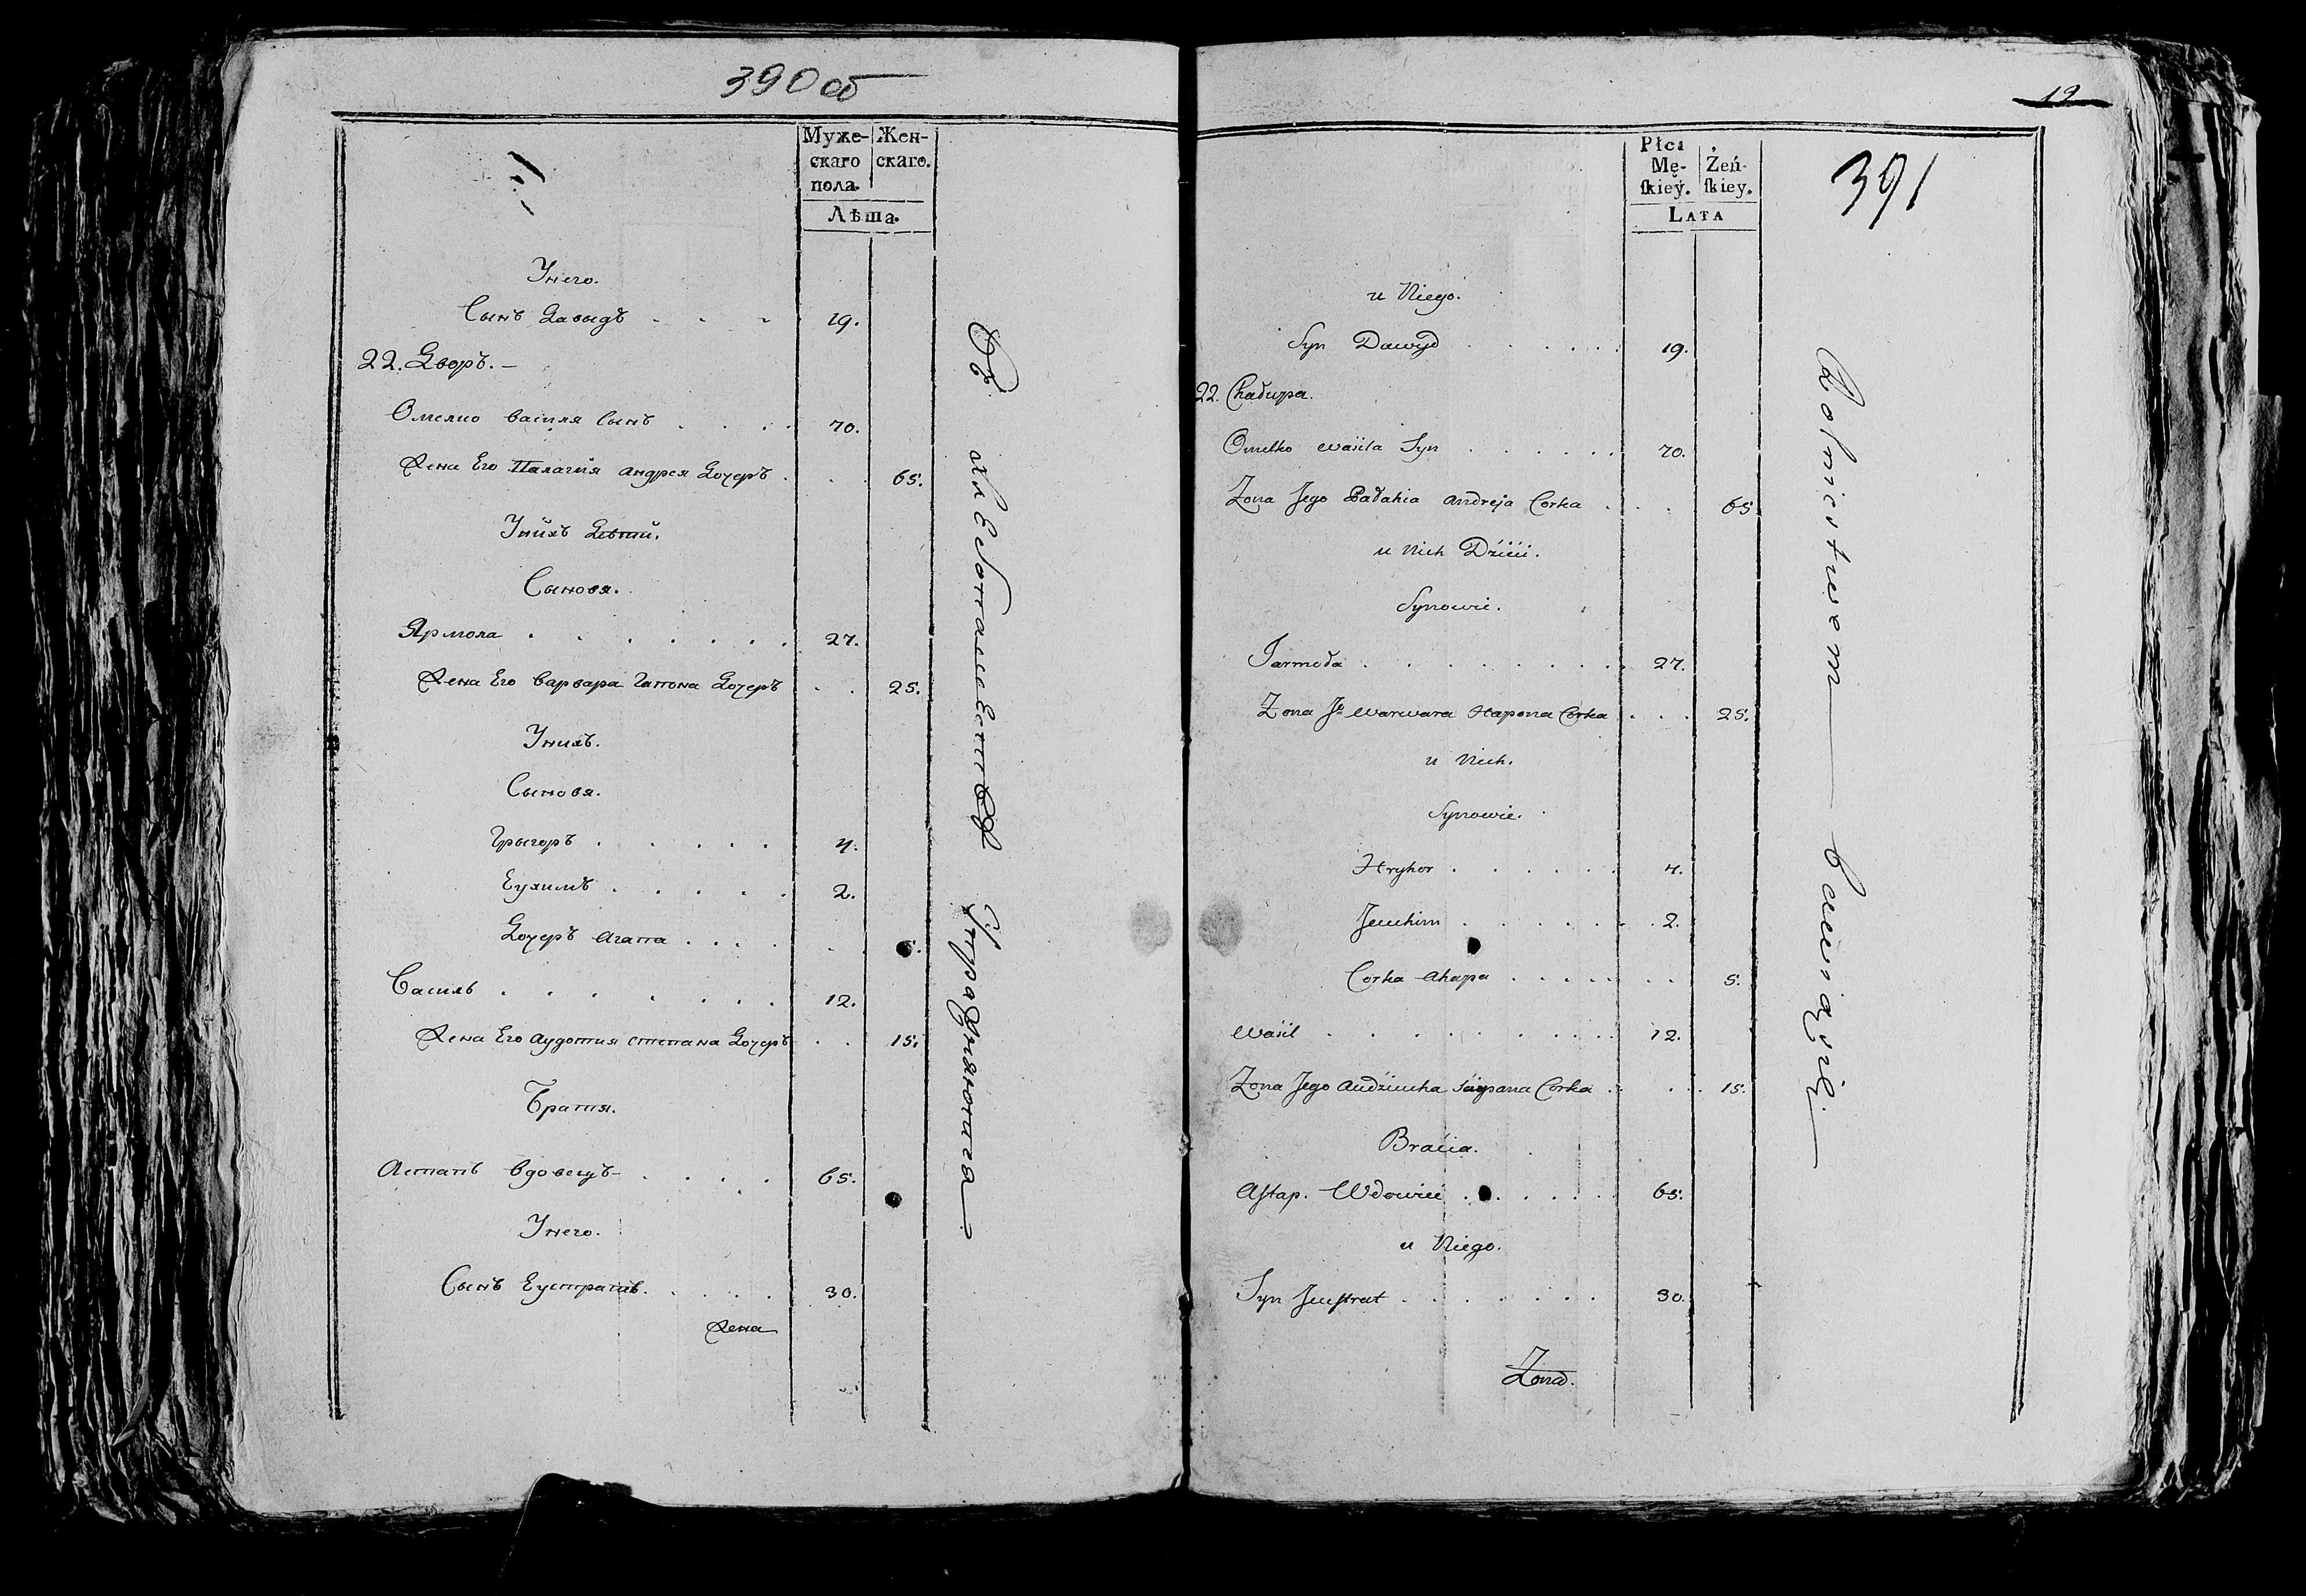 390 об
Муже- Жен-
скаго скаго.
пола.
Лѣта.
Унего.
Сынъ Давыдъ 19.
22. Дворъ.
Омелко Василя Сынъ 70.
Жена Его Палагия Андрея Дочеръ 65.
Унихъ Дѣти.
Сыновя.
Ярмола 27.
Жена Его Варвара Гапона Дочеръ 25.
Унихъ.
Сыновя.
Грыгоръ 4.
Еухимъ 2.
Дочеръ Агапа 5.
Василь 12.
Жена Его Аудотия Степана Дочеръ 15.
Братия.
Астапъ Вдовецъ 65.
Унего.
Сынъ Еустратъ 30.
Жена
19
391
Płci
Mę- Żeń-
ſkieẏ. ſkiey.
LATA
u Niego.
Syn Dawyd 19.
22. Chałupa.
Omelko Wasila Syn 70.
Zona Jego Pałahia Andreja Corka 65
u Nich Dzieci.
Synowie.
Jarmoła 27.
Zona Jo Warwara Hapona Corka 25.
u Nich.
Synowie.
Hryhor 4.
Jeuchim 2.
Corka Ahapa 5.
Wasil 12.
Zona Jego Audziucha Sciepana Corka 15.
Bracia.
Aſtap. Wdowiec 65.
u Niego.
Syn Jeuſtrat 30.
Zona.